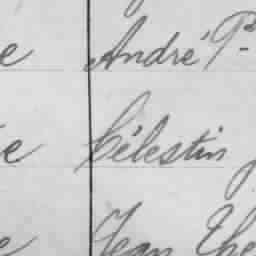 e André P.
e Célestin
e Jean The